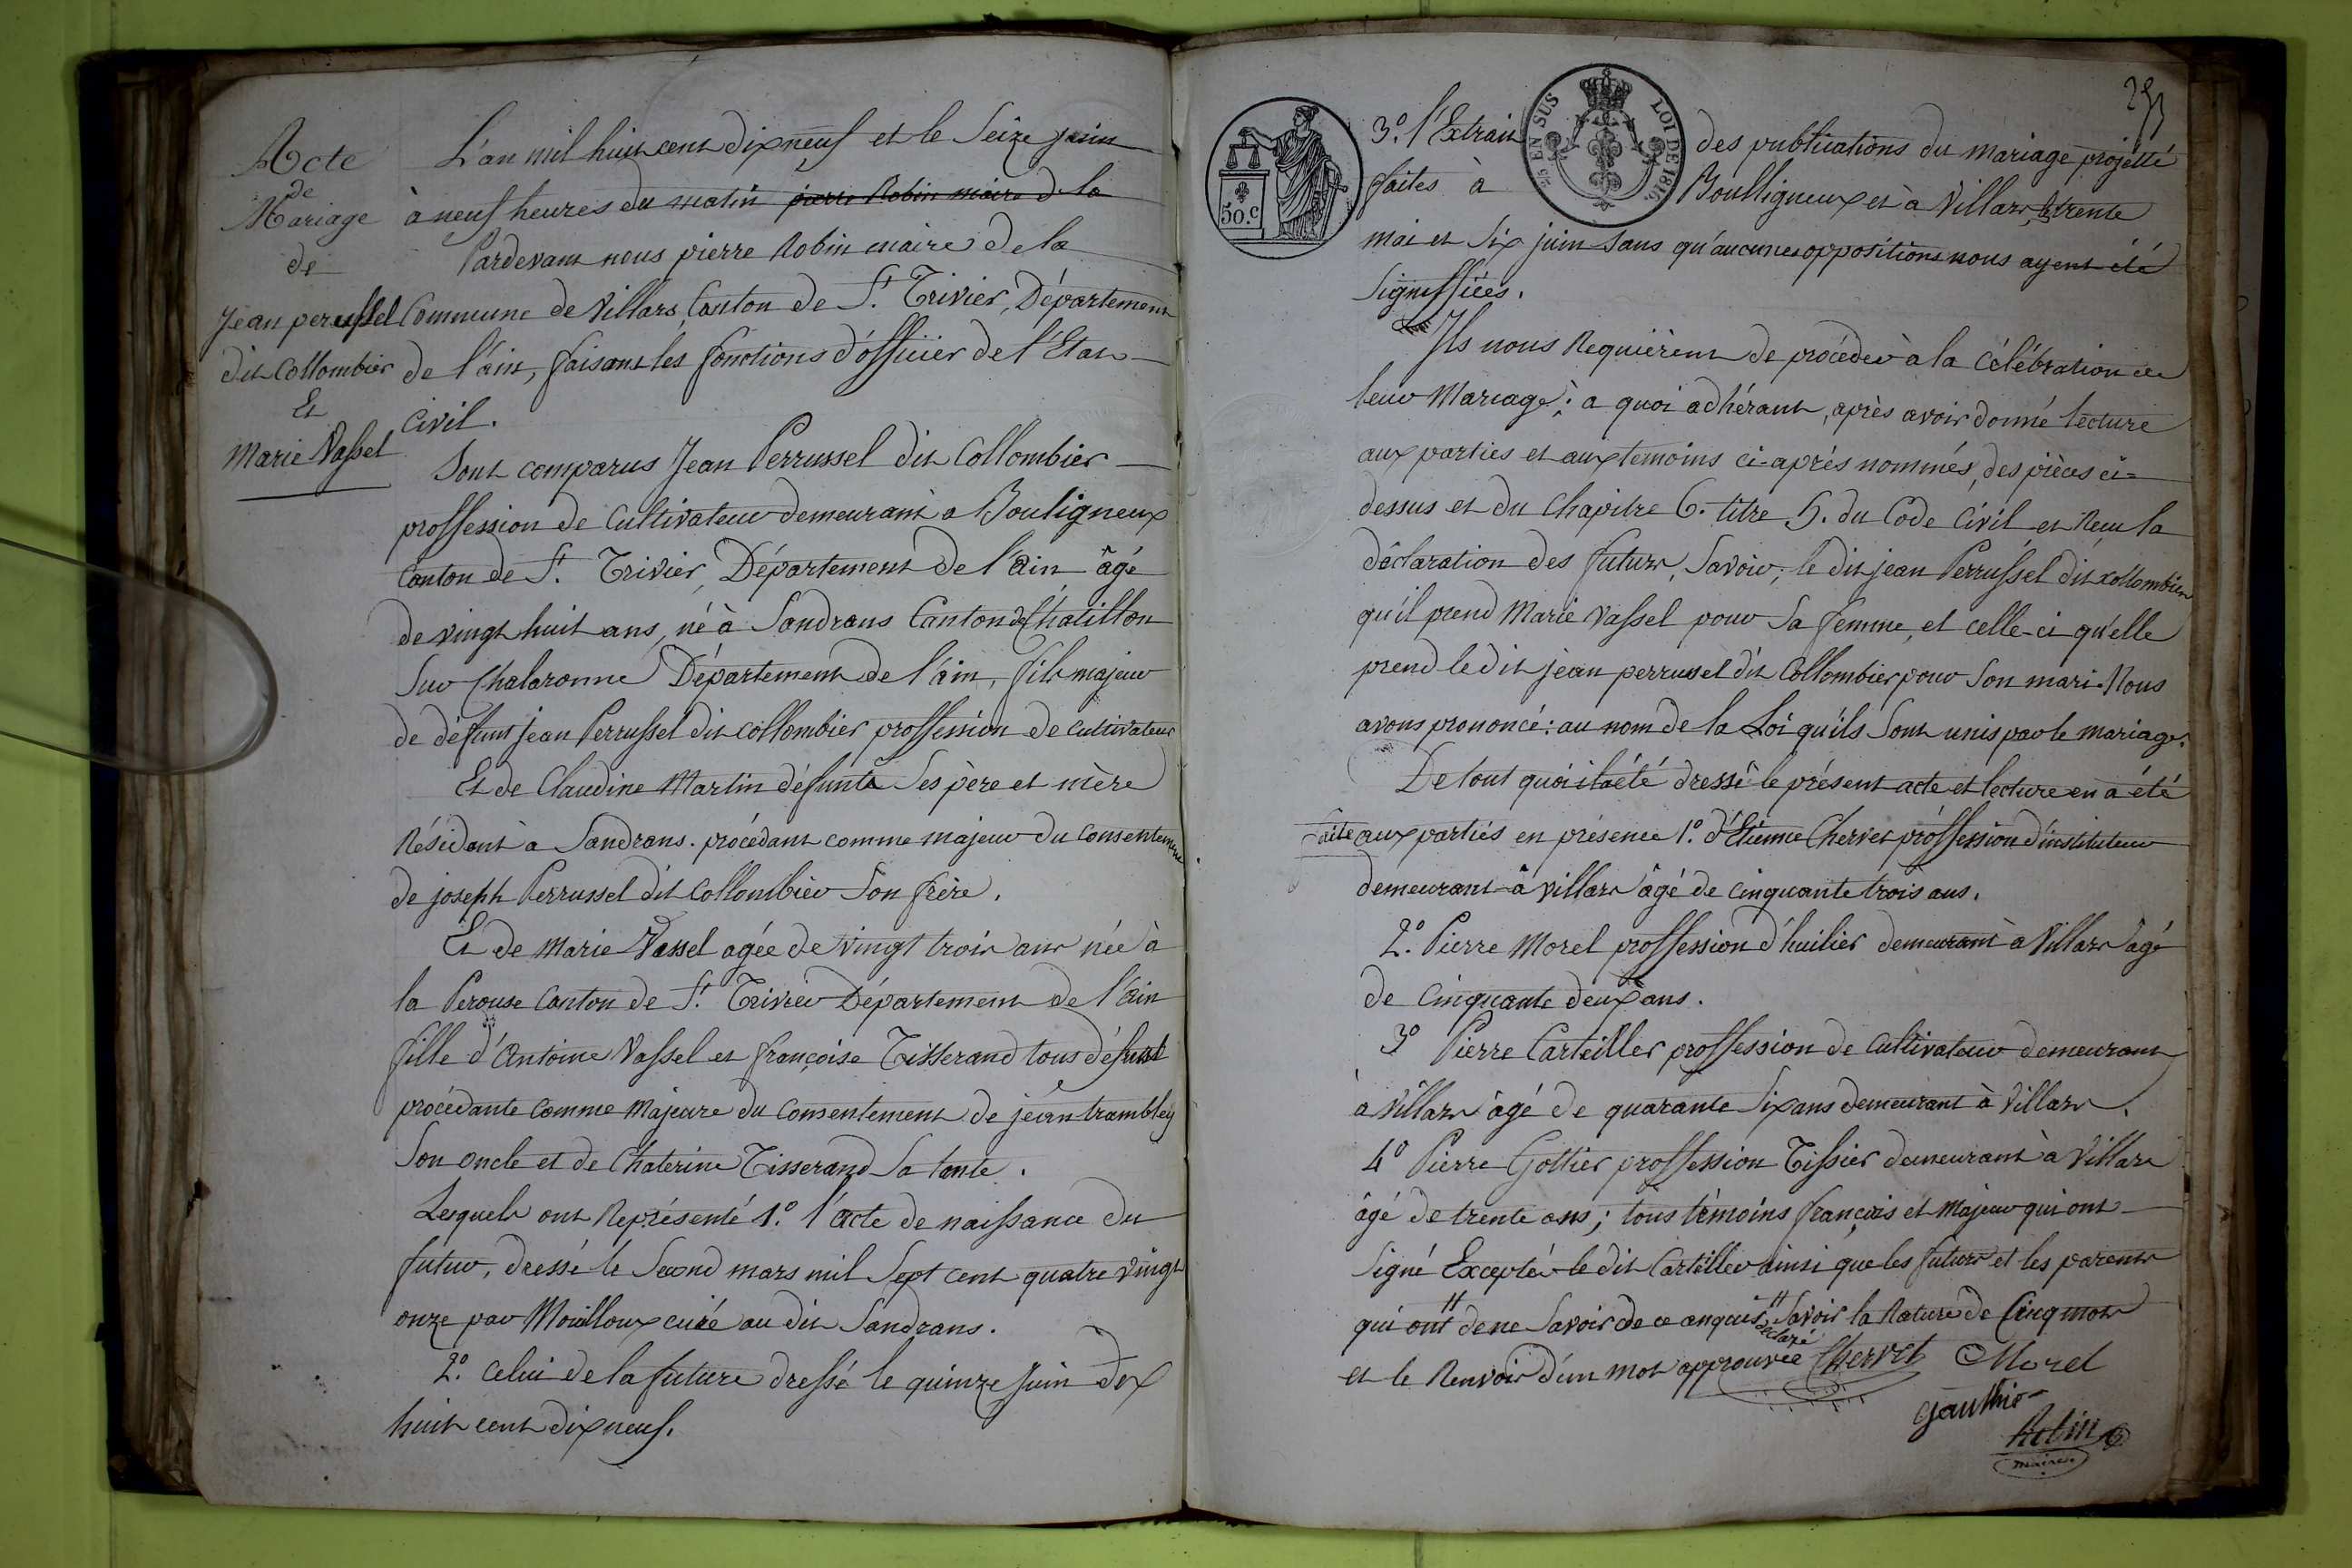 Acte
de
Mariage
de
Jean perussel
dit Collombier
Et
Marie Vassel
L'an mil huit cent dix neuf et le Seize juin
à neuf heures du matin pierre Robin maire de la
Pardevant nous pierre Robin maire de la
Commune de Villars, Canton de St. Trivier, Département
de l'ain, faisant les fonctions d'officier de l'Etat
Civil.
Sont comparus Jean Perrussel dit Collombier
proffession de Cultivateur demeurant a Bouligneux
Canton de St. Trivier, Département de l'ain âgé
de vingt huit ans, né à Sandrans Canton de Chatillon
Sur Chalaronne Département de l'ain, fils majeur
de défunt jean Perrussel dit collombier proffession de cultivateur
Et de Claudine Martin défunte Ses père et mère
Résidant a Sandrans. procédant comme majeur du Consentement
de joseph Perrussel dit Collombier Son frère.
Et de Marie Vassel agée de vingt trois ans née à
la Perouse Canton de St. Trivier Département de l'ain
fille d'Antoine Vassel et françoise Tisserand tous défunt
procédante Comme Majeure du Consentement de jean trambley
Son oncle et de Chaterine Tisserand Sa tante.
Lesquels ont Représenté 1.° l'acte de naissance du
futur, dressé le Second mars mil Sept cent quatre vingt
onze par Mouilloux curé au dit Sandrans.
2.° Celui de la future dressé le quinze juin dix
huit cent dix neuf.
50.c
25 EN SUS LOI DE 1816
3.° l'Extrait des publications du mariage projetté
faites à Boulligneux et à Villars, le trente
mai et Six juin Sans qu'aucunes oppositions nous ayent été
Signiffiées.
Ils nous Requièrent de procéder à la Célébration de
leur Mariage; a quoi adhérant, après avoir donné lecture
aux parties et aux temoins ci-après nommés, des pièces ci=
dessus et du Chapitre 6. titre 5. du Code Civil et Recu la
déclaration des futurs, Savoir; le dit jean Perrussel dit collombier
qu'il prend Marie Vassel pour Sa femme, et celle-ci qu'elle
prend le dit jean perrussel dit Collombier pour Son mari. Nous
avons prononcé: au nom de la Loi qu'ils Sont unis par le mariage.
De tout quoi il a été dressé le présent acte et lecture en a été
faite aux parties en présence 1.° d'Etienne Chervet proffession d'instituteur
demeurant à villars âgé de cinquante trois ans.
2.° Pierre Morel proffession d'huilier demeurant à Villars âgé
de Cinquante deux ans.
3° Pierre Carteiller proffession de Cultivateur demeurant
à Villars âgé de quarante Six ans demeurant à Villars.
4° Pierre Gottier proffession Tissier demeurant à Villars
âgé de trente ans; tous témoins français et Majeur qui ont
Signé Excepté le dit Cartiller ainsi que les futurs et les parents
qui ont de ne Savoir de ce enquis Savoir la Rature de Cinq mots
déclaré
et le Renvoir d'un mot approuvée Chervet Morel
gauthier
Robin
maire